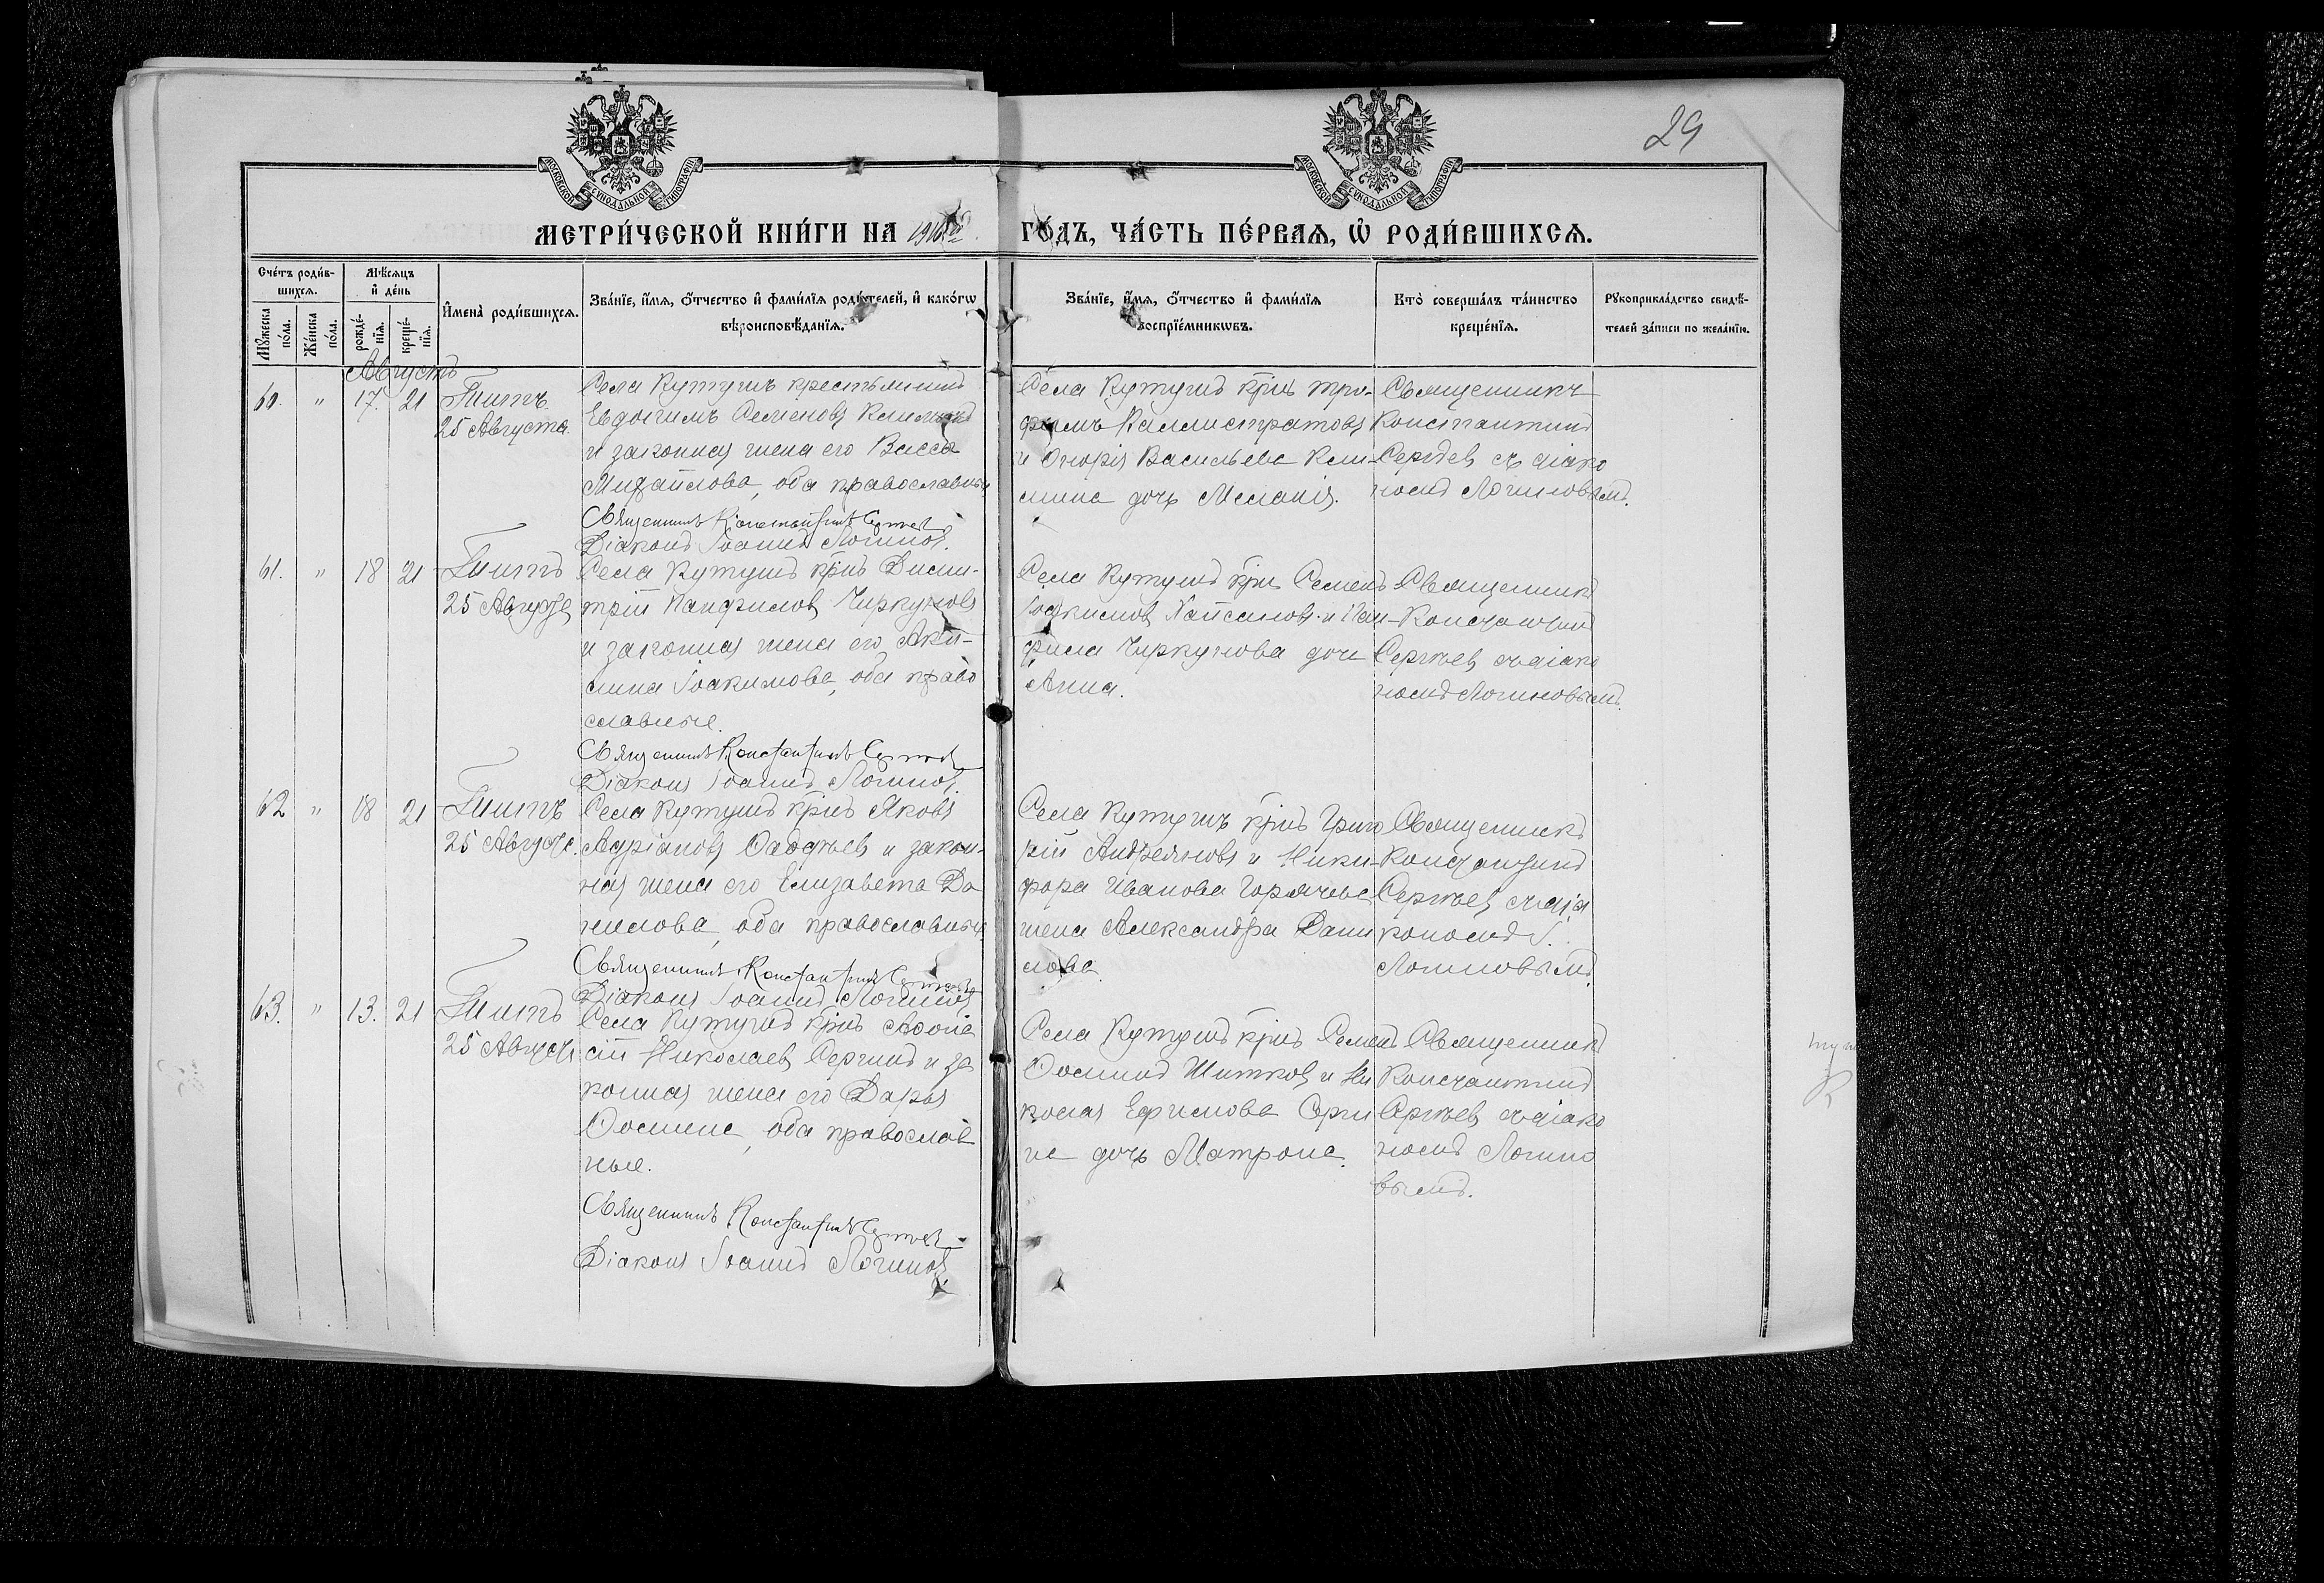 29
МОСКОВСКОЙ СѴНОДАЛЬНОЙ ТИПОГРАФІИ
МОСКОВСКОЙ СѴНОДАЛЬНОЙ ТИПОГРАФІИ
МЕТРИ́ЧЕСКОЙ КНИ́ГИ НА 1916 ГО́ДЪ, ЧА́СТЬ ПЕ́РВАѦ, Ѡ҆ РОДИ́ВШИХСѦ.
Сче́тъ роди́в-
шихсѧ.
Мꙋ́жеска
по́ла.
Же́нска
по́ла.
Мѣ́сѧцъ
и҆ де́нь
рожде́-
нїѧ.
креще́-
нїѧ.
И҆мена̀ роди́вшихсѧ.
Зва́нїе, и҆́мѧ, ѻ҆́тчество и҆ фами́лїѧ роди́телей, и҆ како́гѡ
вѣроисповѣ́данїѧ.
Зва́нїе, и҆́мѧ, ѻ҆́тчество и҆ фами́лїѧ
воспрїе́мникѡвъ.
Кто̀ соверша́лъ та́инство
креще́нїѧ.
Рꙋкоприкла́дство свидѣ́-
телей за́писи по жела́нїю.
Августъ
60. " 17. 21 Титъ
25 Августа.
Села Кутуши крестьянинъ
Евдокимъ Семеновъ
и законная жена его Васса
Михайлова, оба православные
Священникъ Константинъ Сергѣевъ
Діаконъ Іоаннъ Логиновъ.
Села Кутуши кр̃нъ Тро-
фимъ Каллистратовъ
и Васильева
дочь Меланія.
Священникъ
Константинъ
Сергѣевъ съ діако
номъ Логиновымъ.
61. " 18 21 Титъ
25 Августа
Села Кутуши кр̃нъ Дими-
трій Панфиловъ Чиркуновъ
и законная жена его Аки-
лина Іоакимова, оба право
славные.
Священникъ Константинъ Сергѣевъ
Діаконъ Іоаннъ Логиновъ.
Села Кутуши кр̃нъ Семенъ
Іоакимовъ и Пан-
фила Чиркунова дочь
Анна.
Священникъ
Константинъ
Сергѣевъ съ діако
номъ Логиновымъ.
62 " 18 21 Титъ
25 Августа.
Села Кутуши кр̃нъ Яковъ
Адріановъ и закон-
ная жена его Елизавета Да
нилова, оба православные.
Священникъ Константинъ Сергѣевъ
Діаконъ Іоаннъ Логиновъ
Села Кутуши кр̃нъ Григо
рій Андреяновъ и Ники-
фора Иванова Горячева
жена Александра Дани
лова
Священникъ
Константинъ
Сергѣевъ съ діа
кономъ І.
Логиновымъ.
63. " 13. 21 Титъ
25 Августа
Села Кутуши кр̃нъ Аѳона
сій Николаевъ Сергинъ и за
конная жена его Дарья
Ѳомина, оба православ
ные.
Священникъ Константинъ Сергѣевъ
Діаконъ Іоаннъ Логиновъ.
Села Кутуши кр̃нъ Семенъ
Ѳоминъ и Ни
колая Ефимова Серги
на дочь Матрона.
Священникъ
Константинъ
Сергѣевъ съ діако
номъ Логино
вымъ.